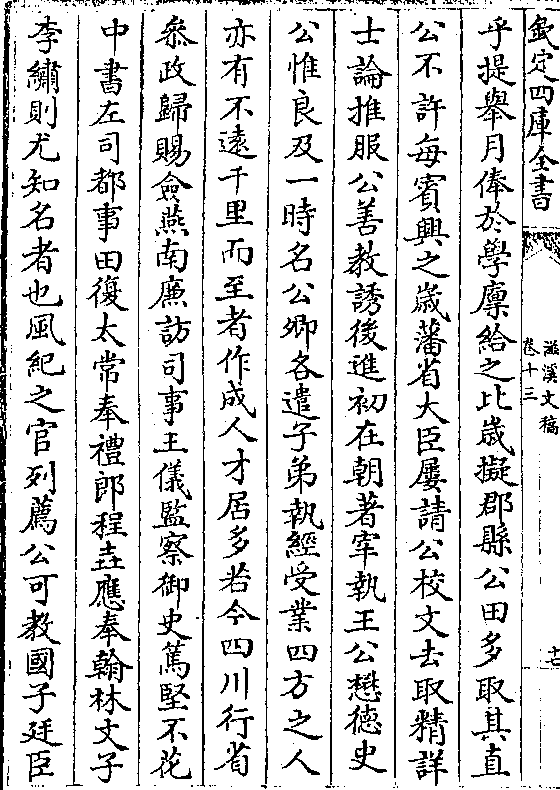 欽定四庫全書
滋溪文稿
卷十三
十二
乎提舉月俸於學廪給之比歳擬郡縣公田多取其直
公不許每賓興之歳藩省大臣屢請公校文去取精詳
士論推服公善教誘後進初在朝著宰執王公懋德史
公惟良及一時名公卿各遣子弟執經受業四方之人
亦有不逺千里而至者作成人才居多若今四川行省
叅政歸暘僉燕南亷訪司事王儀監察御史篤堅不花
中書左司都事田復太常奉禮郎程壵應奉翰林文字
李繡則尤知名者也風紀之官列薦公可教國子廷臣